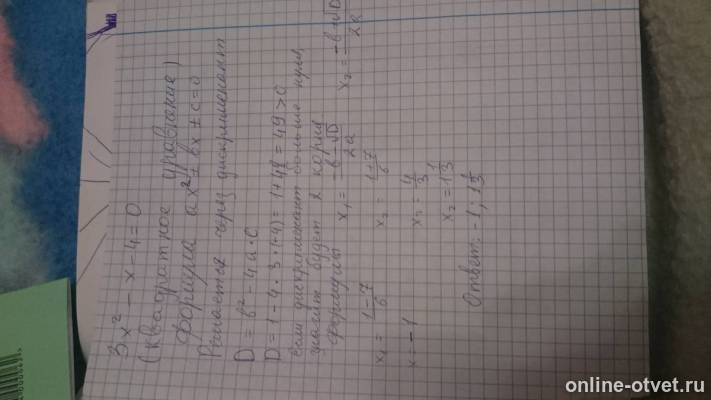 3x² - x - 4 = 0
(квадратное уравнение)
формула ax² ± вx ± c = 0
Решается через дискриминант
D = в² - 4a·c
D = 1 - 4·3·(-4) = 1 + 48 = 49 > 0
если дискриминант больше нуля,
значит будет 2 корня
формулы x₁ = -в - √D / 2a x₂ = -в + √D / 2a
x₁ = 1 - 7 / 6 x₂ = 1 + 7 / 6
x = -1 x₂ = 4/3
x₂ = 1 1/3
Ответ: -1; 1 1/3
online-otvet.ru